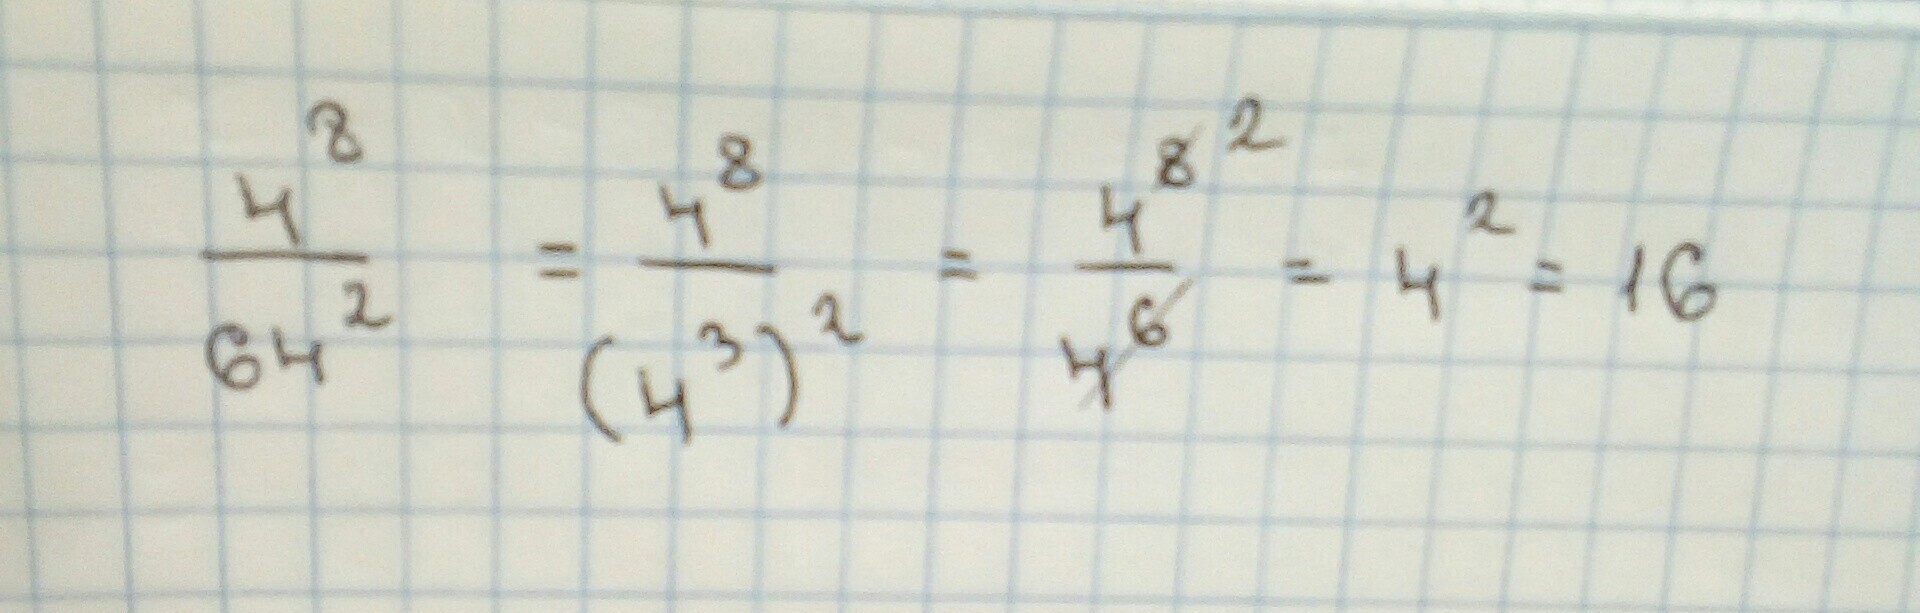 4^8/64^2 = 4^8/(4^3)^2 = 4^8 2/4^6 = 4^2 = 16